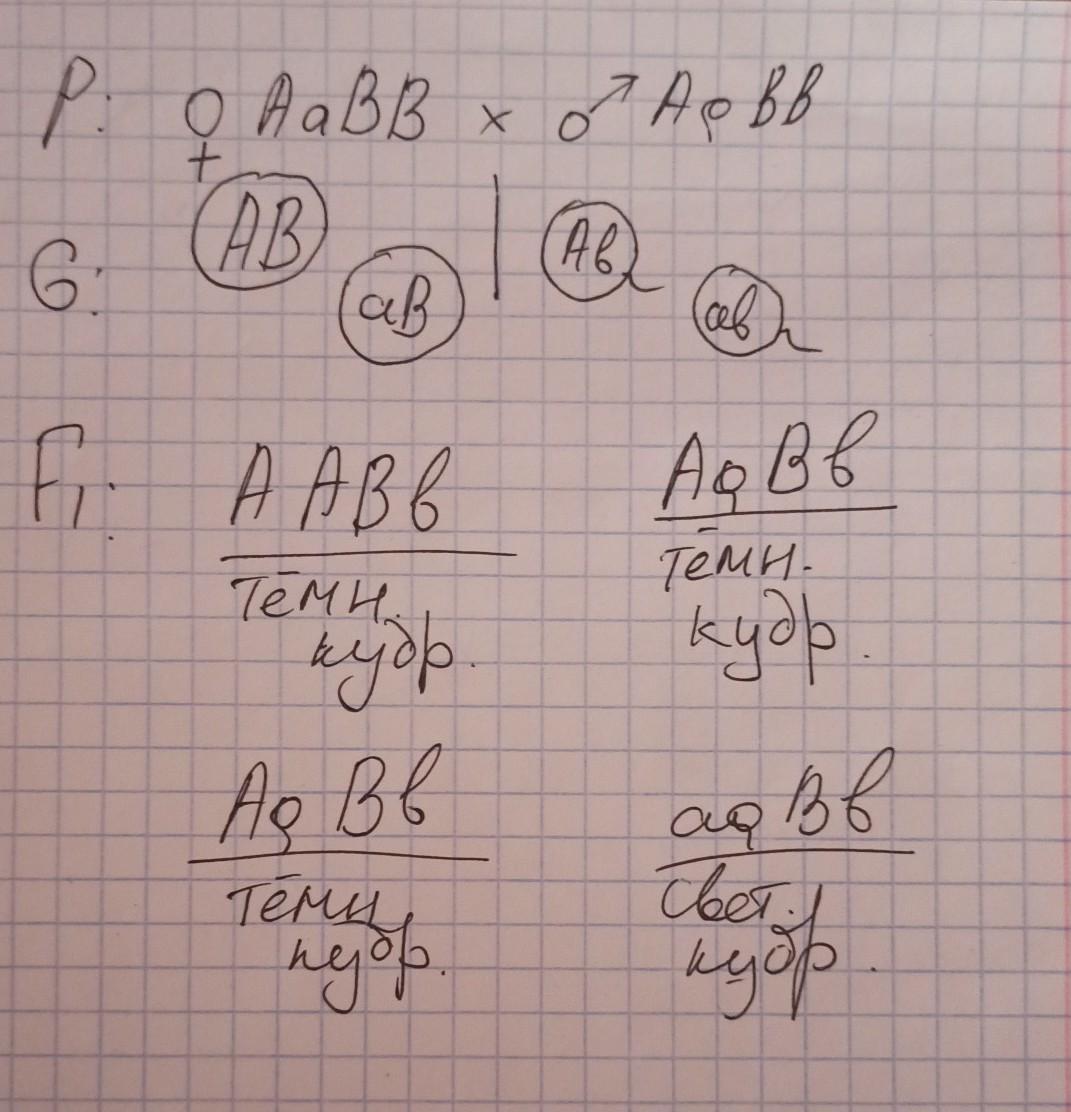 P: ♀ AaBB × ♂ Aaвв
G: AB aB | Aв aв
F₁: AABв AaBв
тёмн. тёмн.
кудр. кудр.
AaBв aaBв
тёмн. свет.
кудр. кудр.